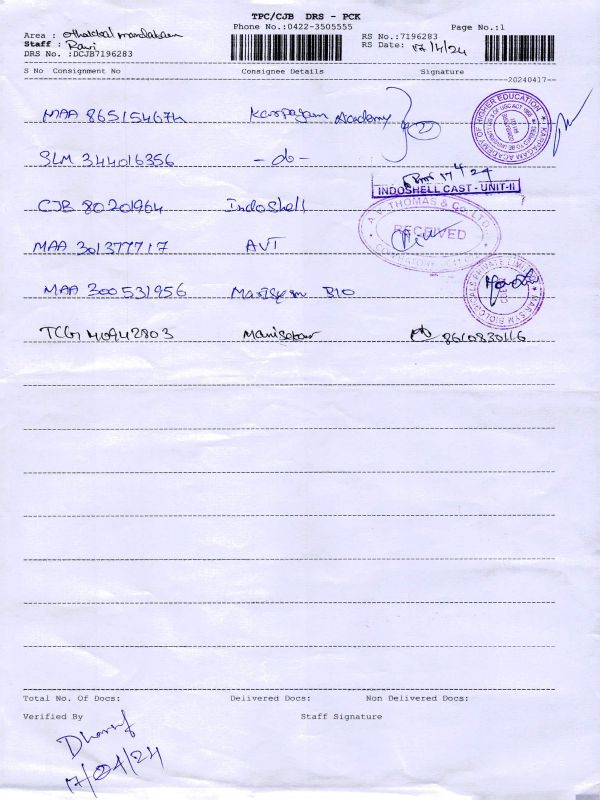 TPC/CJB DRS - PCK
Phone No.:0422-3505555
Page No.:1
Area : othakkal mandapam
Staff : Ravi
DRS No. :DCJB7196283
RS No.:7196283
RS Date: 17/4/24
S No Consignment No Consignee Details Signature
20240417
MAA 865154674 Karpagam Academy 2
SLM 344016356 - do -
17/4/24
INDOSHELL CAST - UNIT-II
CJB 80201964 Indoshell
A.V. THOMAS & Co. LTD.
RECEIVED
MAA 301377717 AVT
MAA 300531956 Marsyem BIO
8610830116
Total No. Of Docs: Delivered Docs: Non Delivered Docs:
Verified By Staff Signature
17/04/24